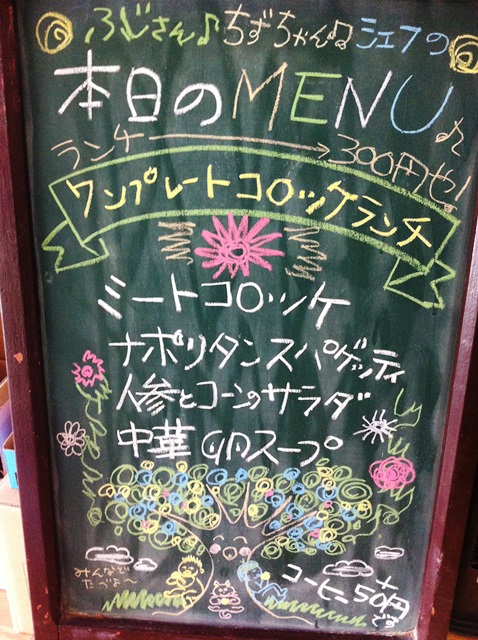 ふじさん♪ちずちゃん♫シェフの
本日のMENU♪
ランチー→300円也!
ワンプレートコロッケランチ
ミートコロッケ
ナポリタンスパゲッティ
人参とコーンのサラダ
中華卵スープ
みんなで
たべよ〜
コーヒー+50円です